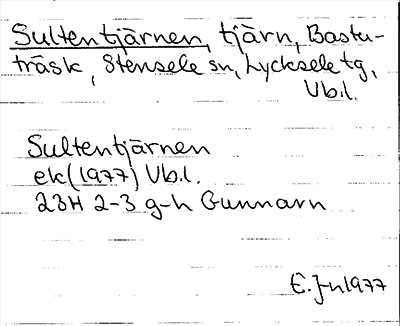 Sultentjärnen, tjärn, Bastu-
träsk, Stensele sn, Lycksele tg,
Vb.l.
Sultentjärnen
ek(1977) Vb.l.
23H 2-3 g-h Gunnarn
E.J-n 1977